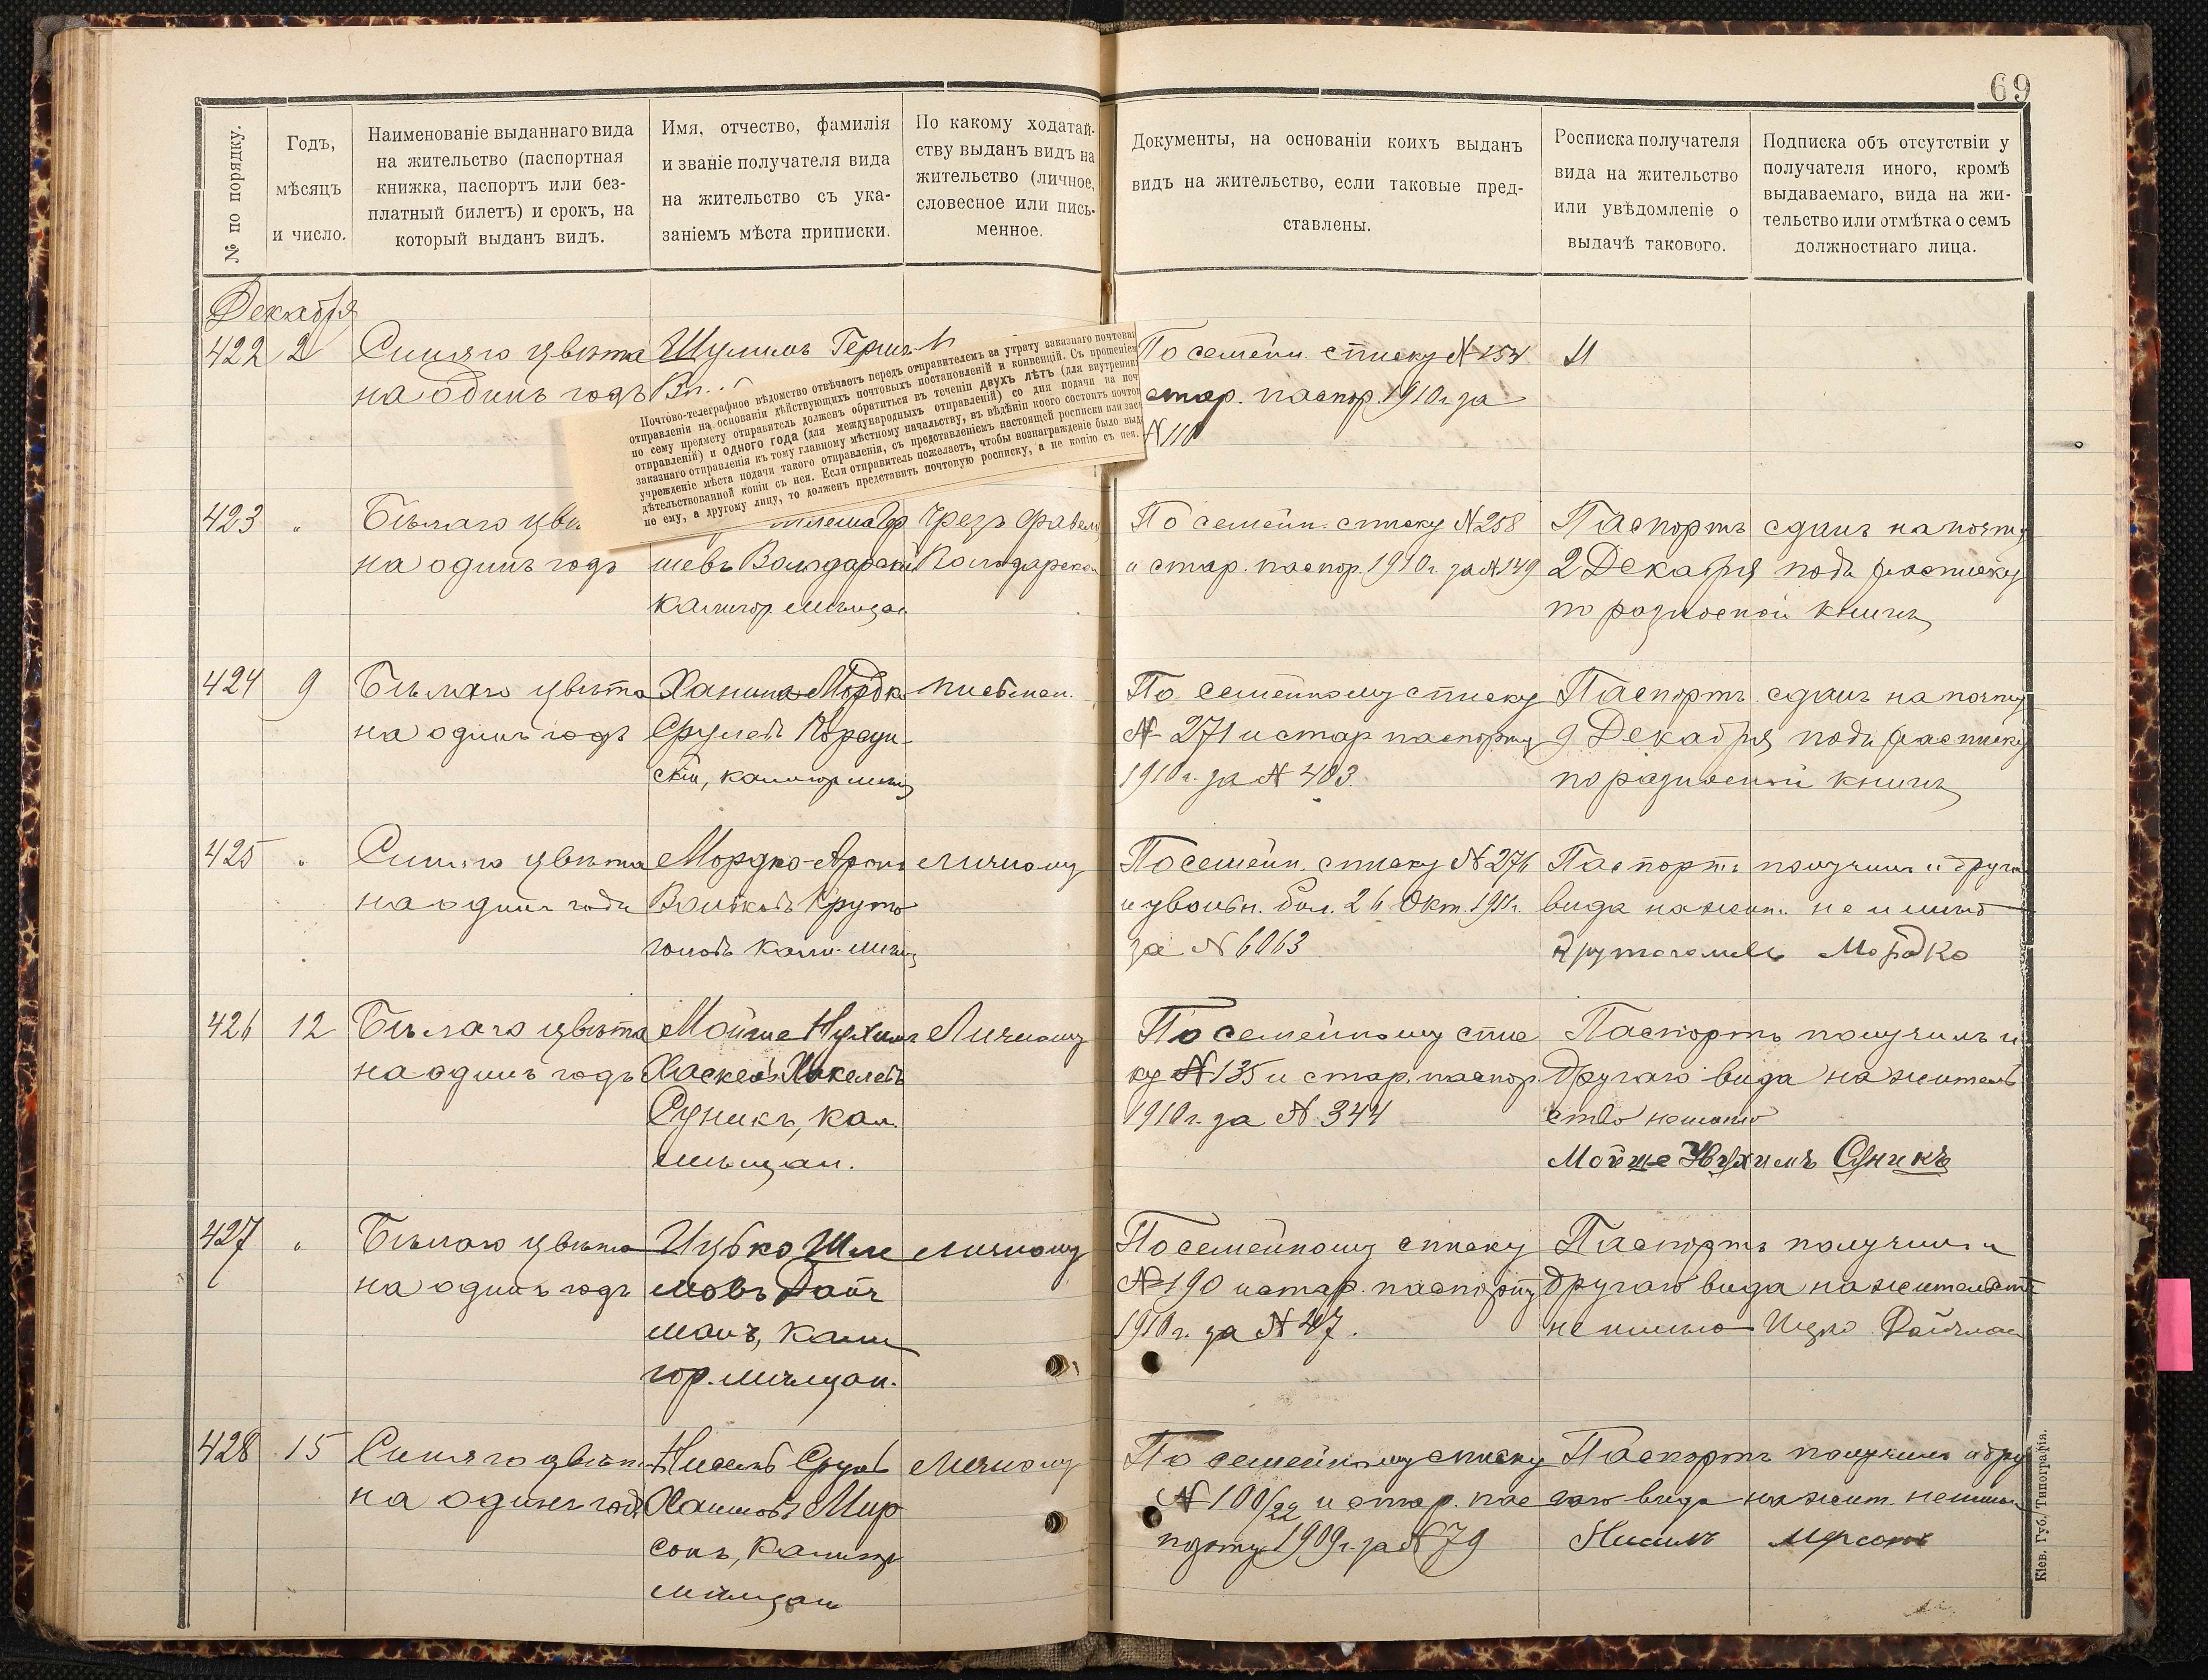 69
№ по порядку.
Годъ,
мѣсяцъ
и число.
Наименованіе выданнаго вида
на жительство (паспортная
книжка, паспортъ или без-
платный билетъ) и срокъ, на
который выданъ видъ.
Имя, отчество, фамилія
и званіе получателя вида
на жительство съ ука-
заніемъ мѣста приписки.
По какому ходатай-
ству выданъ видъ на
жительство (личное,
словесное или пись-
менное.
Документы, на основаніи коихъ выданъ
видъ на жительство, если таковые пред-
ставлены.
Росписка получателя
вида на жительство
или увѣдомленіе о
выдачѣ такового.
Подписка объ отсутствіи у
получателя иного, кромѣ
выдаваемаго, вида на жи-
тельство или отмѣтка о семъ
должностнаго лица.
Декабря
422 2 Синяго цвѣта Шулимъ Герш
на одинъ годъ
По семейн. списку №154
стар. паспор. 1910 г за
№110
Почтово-телеграфное вѣдомство отвѣчаетъ передъ отправителемъ за утрату заказнаго почтова
отправленія на основаніи дѣйствующихъ почтовыхъ постановленій и конвенцій. Съ прошеніе
по сему предмету отправитель долженъ обратиться въ теченіи двухъ лѣтъ (для внутренни
отправленій) и одного года (для международныхъ отправленій) со дня подачи на поч
заказнаго отправленія къ тому главному мѣстному начальству, въ вѣдѣніи коего состоитъ почтов
учрежденіе мѣста подачи такого отправленія, съ представленіемъ настоящей росписки или зас
дѣтельствованной копіи съ нея. Если отправитель пожелаетъ, чтобы вознагражденіе было выд
не ему, а другому лицу, то долженъ представить почтовую росписку, а не копію съ нея.
423 " Бѣлаго цвѣ Чрезъ
на одинъ годъ шевъ Володарскій Володарско
калигор. мѣщан
По семейн. списку №258
и стар. паспор. 1910 г. за №149
Паспортъ сданъ на почту
2 Декабря подъ расписку
по разносной книгѣ
424 9 Бѣлаго цвѣта Ханина Мордко письмен.
на одинъ годъ Срулевъ Корсун-
скій, калигор мѣщ
По семейному списку
№ 271 и стар паспорту
1910 г. за № 403.
Паспортъ сданъ на почту
9 Декабря подъ расписку
по разносной книгѣ
425 " Синяго цвѣта Мордко-Аронъ личному
на одинъ годъ Вольковъ Круто
головъ кали. мѣщ
По семейн. списку №276
и увольн. бил. 26 Окт. 1911 г.
за № 6063
Паспортъ получилъ и друго
вида на жит. не имѣю
Мордко
426 12 Бѣлаго цвѣта Мойше Нухимъ Личному
на одинъ годъ Хаскелевъ
Суникъ, кал.
мѣщан.
По семейному спис
ку №135 и стар. паспор.
1910 г. за № 344
Паспортъ получилъ и
другаго вида на житель
ство неимѣю
Мойше Нухимъ Суникъ
427 " Бѣлаго цвѣта Ицько Шле личному
на одинъ годъ мовъ Дайч
манъ, кали
гор. мѣщан.
По семейному списку
№190 и стар. паспорту
1910 г. за № 47.
Паспортъ получилъ и
другаго вида на жительст
не имѣю Ицко Дайчман
428 15 Синяго цвѣта Нисель Срул личному
на одинъ годъ Хаимовъ Мир
сонъ, калигор
мѣщан
По семейному списку
№ 100/22 и стар. пас
порту 1909 г. за №79
Паспортъ получилъ и дру
гаго вида на жит. неимѣю
Кіев. Губ. Типографія.